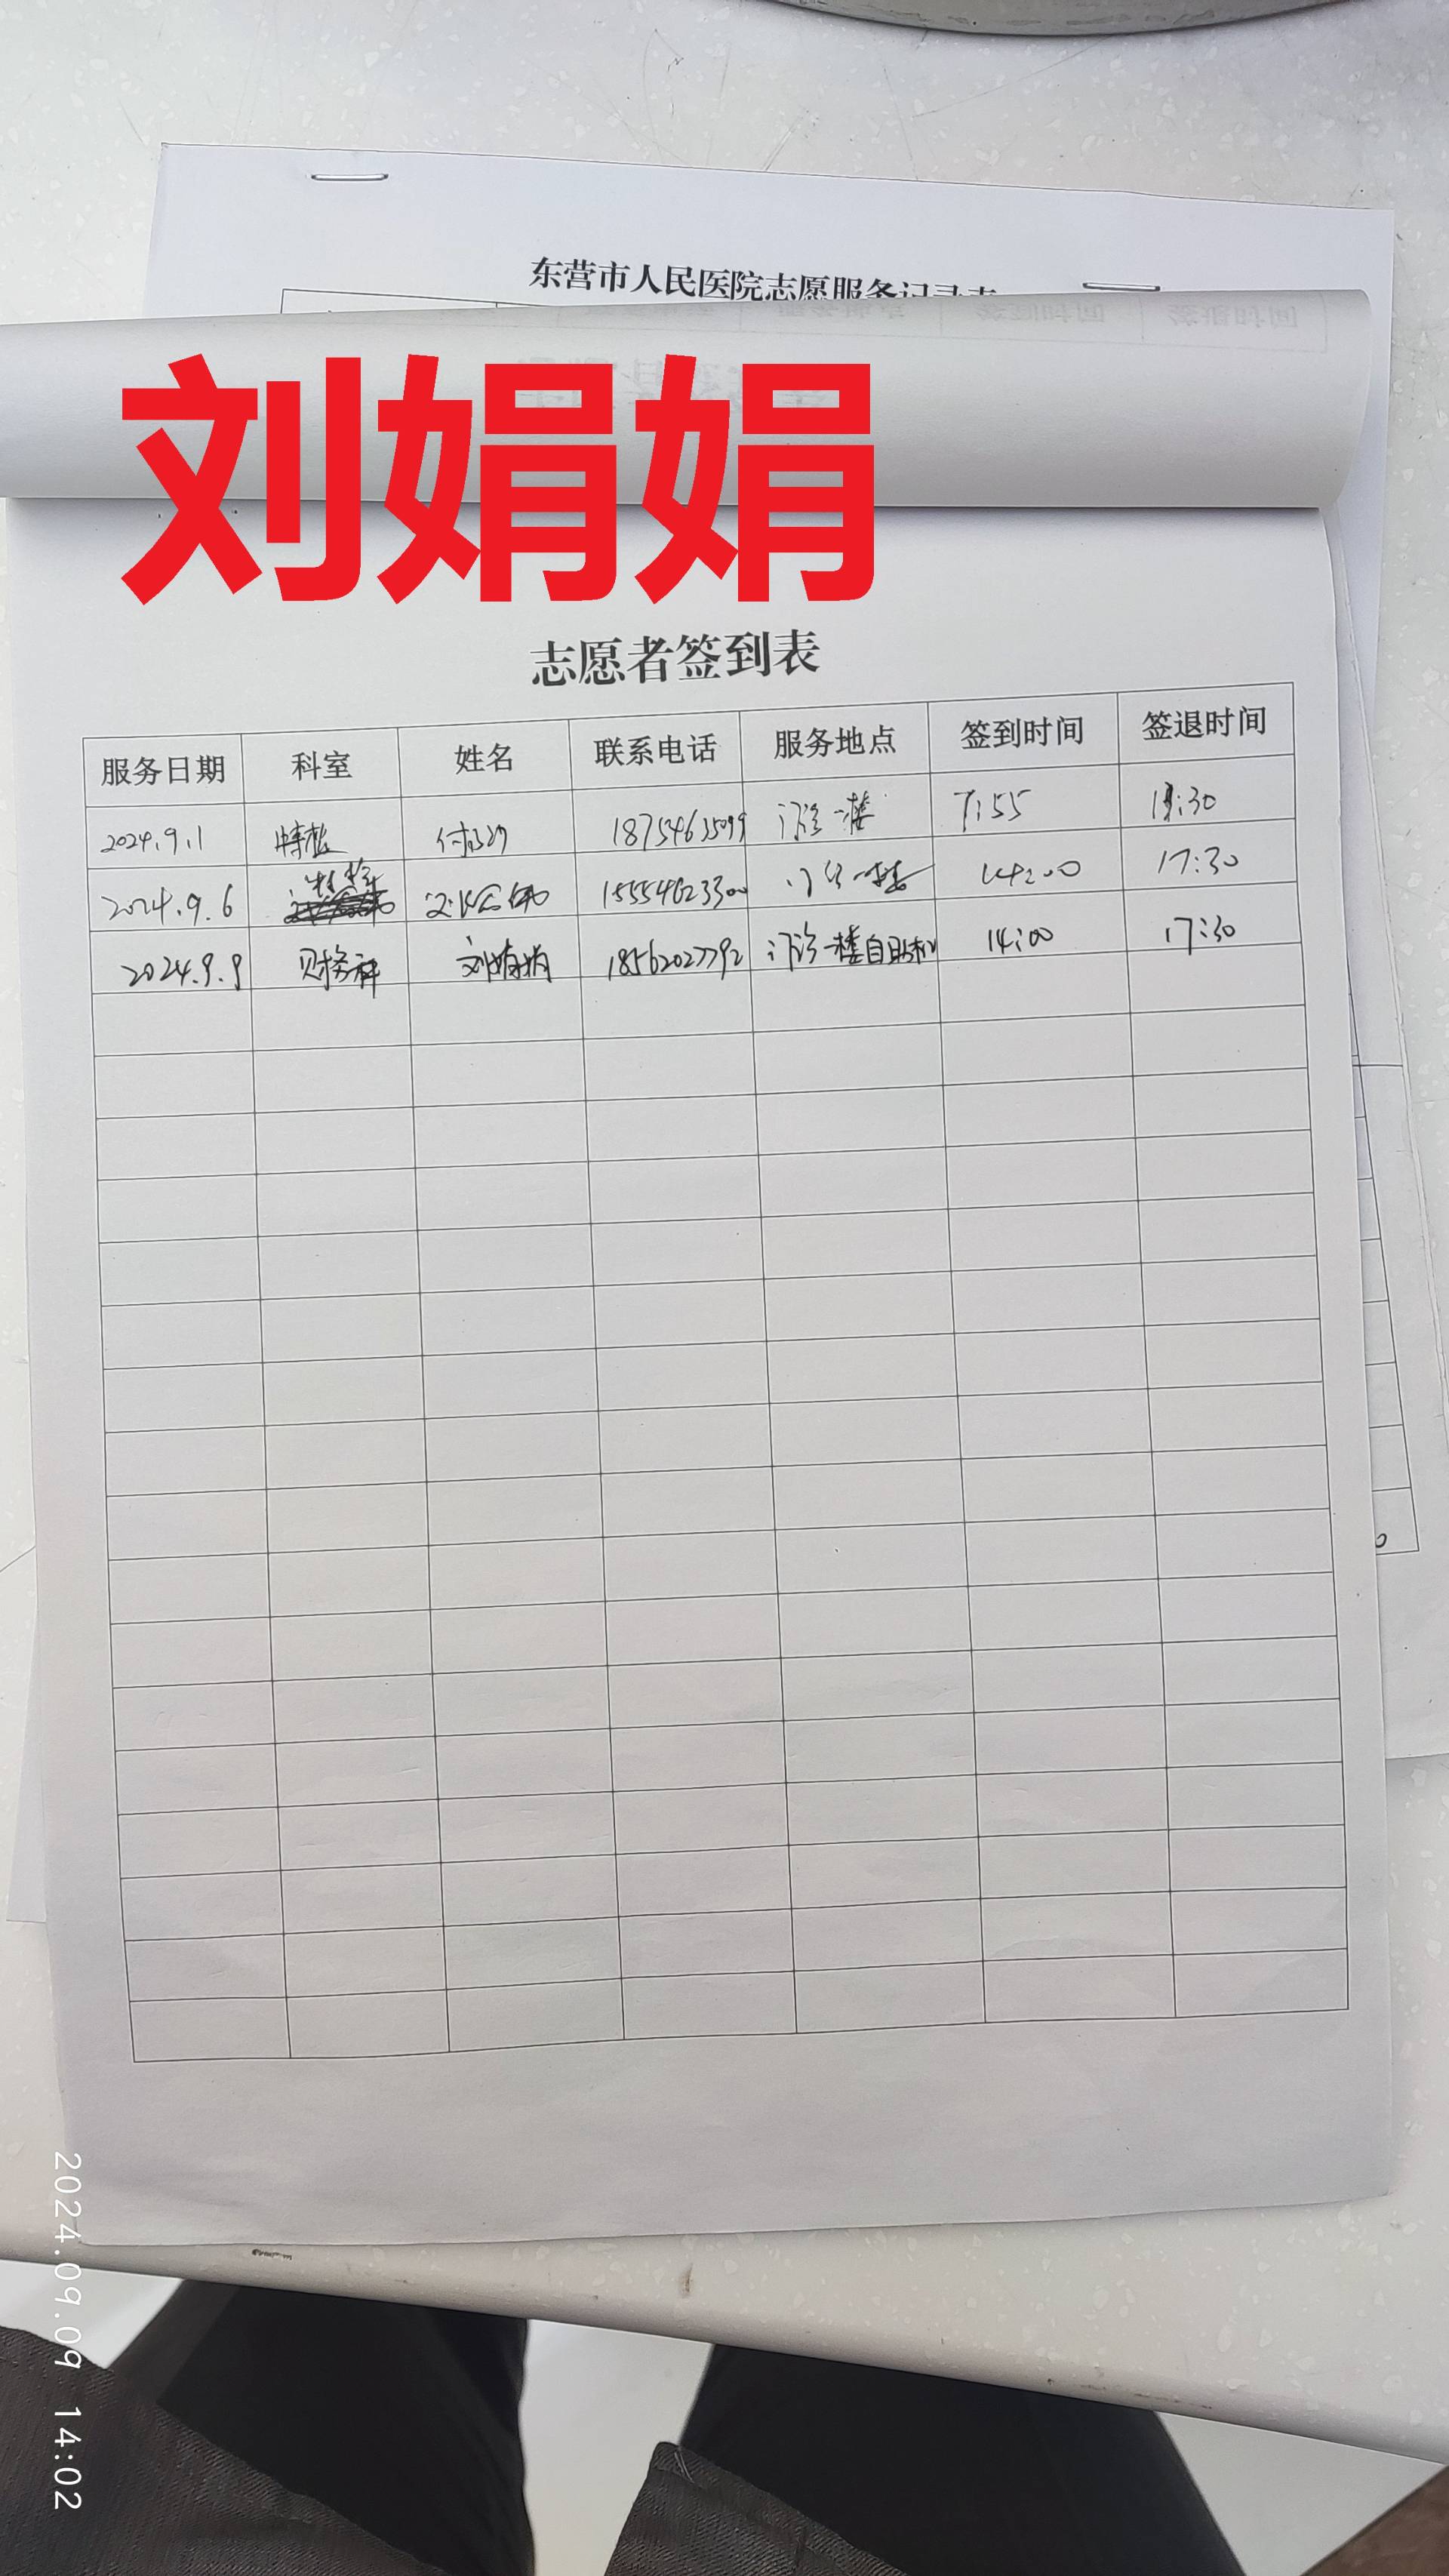 东营市人民医院志愿服务记录表
刘娟娟
志愿者签到表
服务日期 科室 姓名 联系电话 服务地点 签到时间 签退时间
2024.9.1 门诊一楼 7:55
2024.9.6 15554623300 门诊一楼 14:00 17:30
2024.9.9 财务科 刘娟娟 18562027792 门诊一楼自助机 14:00 17:30
2024.09.09 14:02